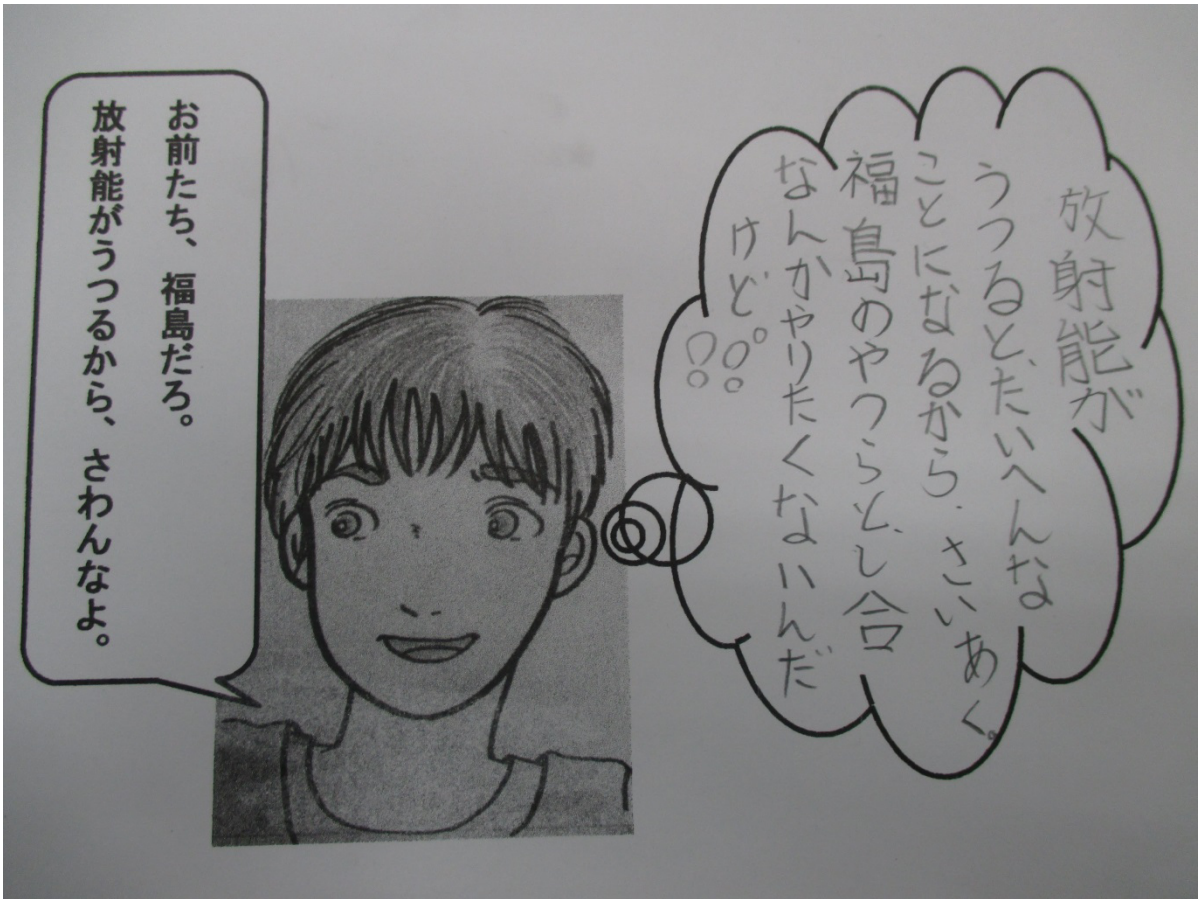 放射能が
うつると、たいへんな
ことになるから、さいあく。
福島のやつらと、し合
なんかやりたくないんだ
けど。。
お前たち、福島だろ。
放射能がうつるから、さわんなよ。